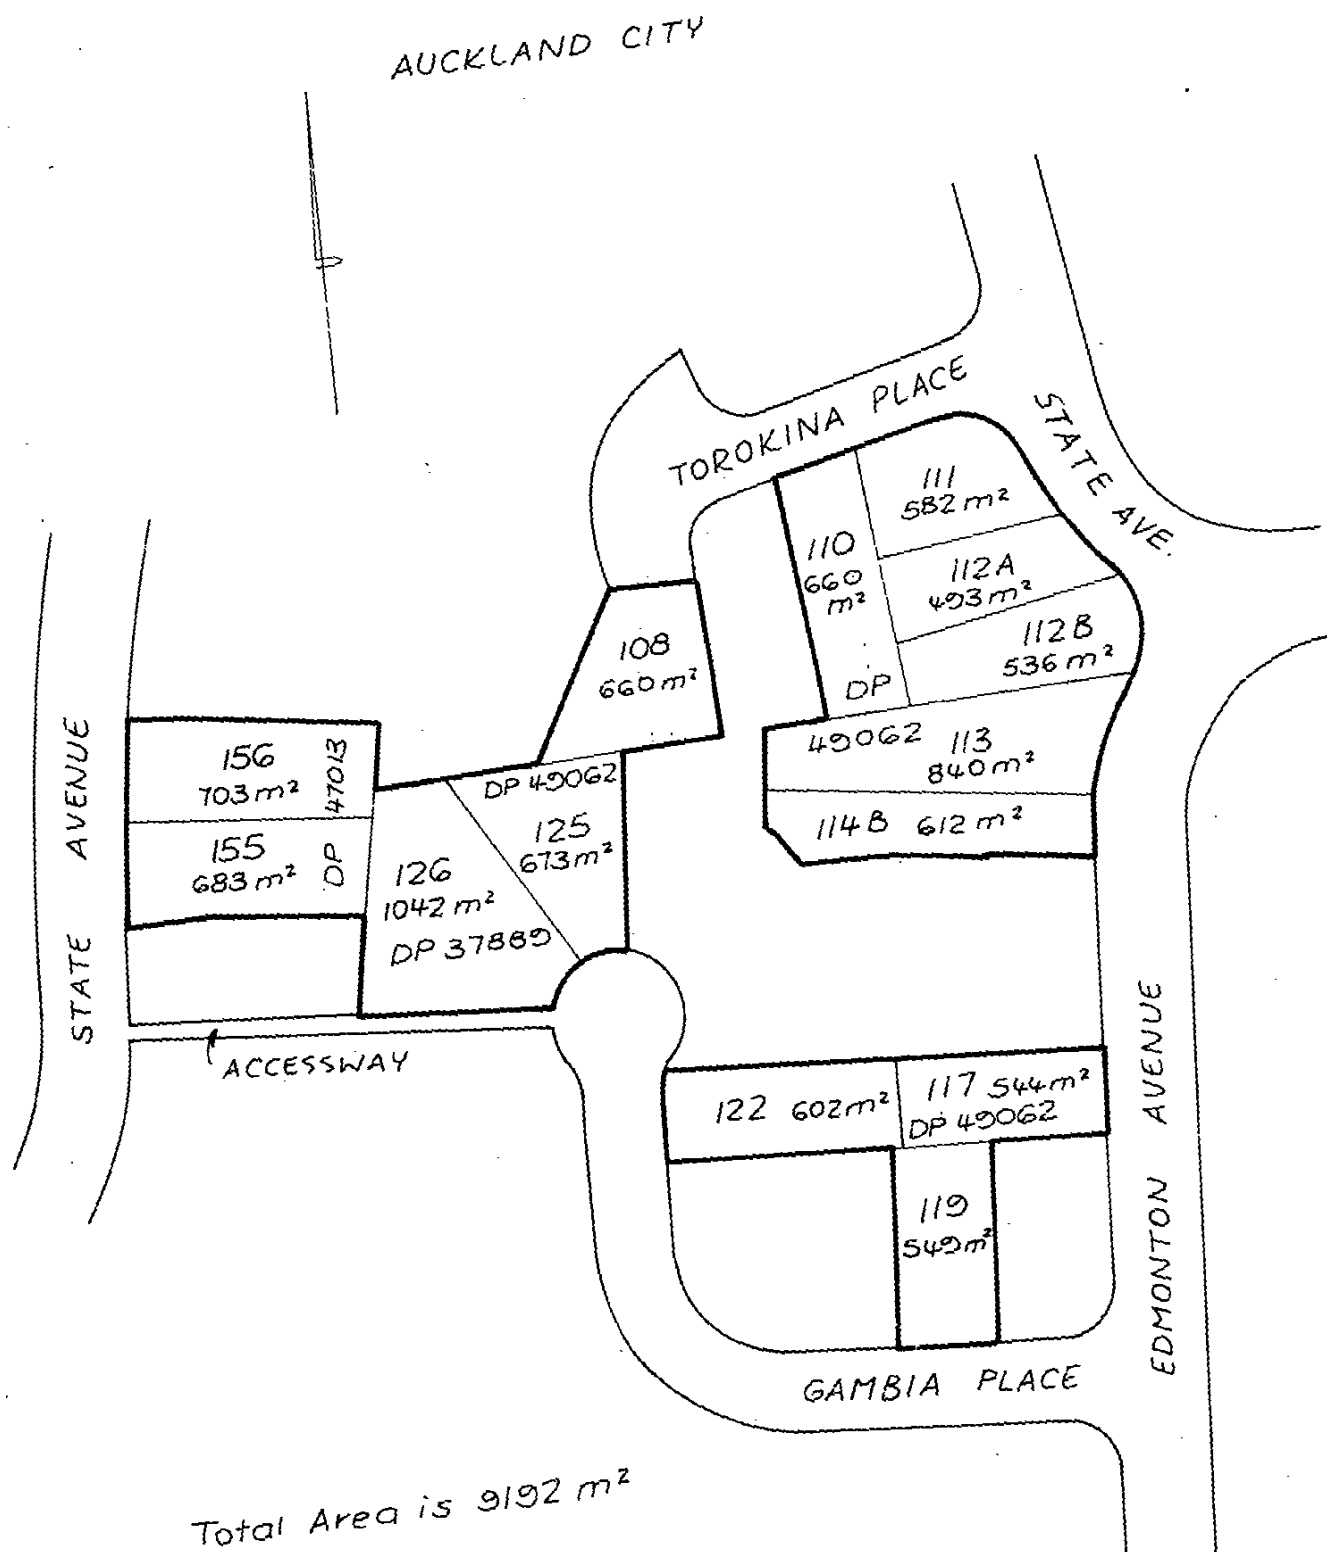 AUCKLAND CITY
TOROKINA PLACE
STATE AVE.
111
582 m²
110
660
m²
112A
493 m²
112B
536 m²
DP
49062
113
840 m²
114B 612 m²
108
660 m²
STATE AVENUE
156
703 m²
155
683 m²
DP 47013
DP 49062
125
673 m²
126
1042 m²
DP 37889
ACCESSWAY
122 602 m²
117 544 m²
DP 49062
119
549 m²
EDMONTON AVENUE
GAMBIA PLACE
Total Area is 9192 m²